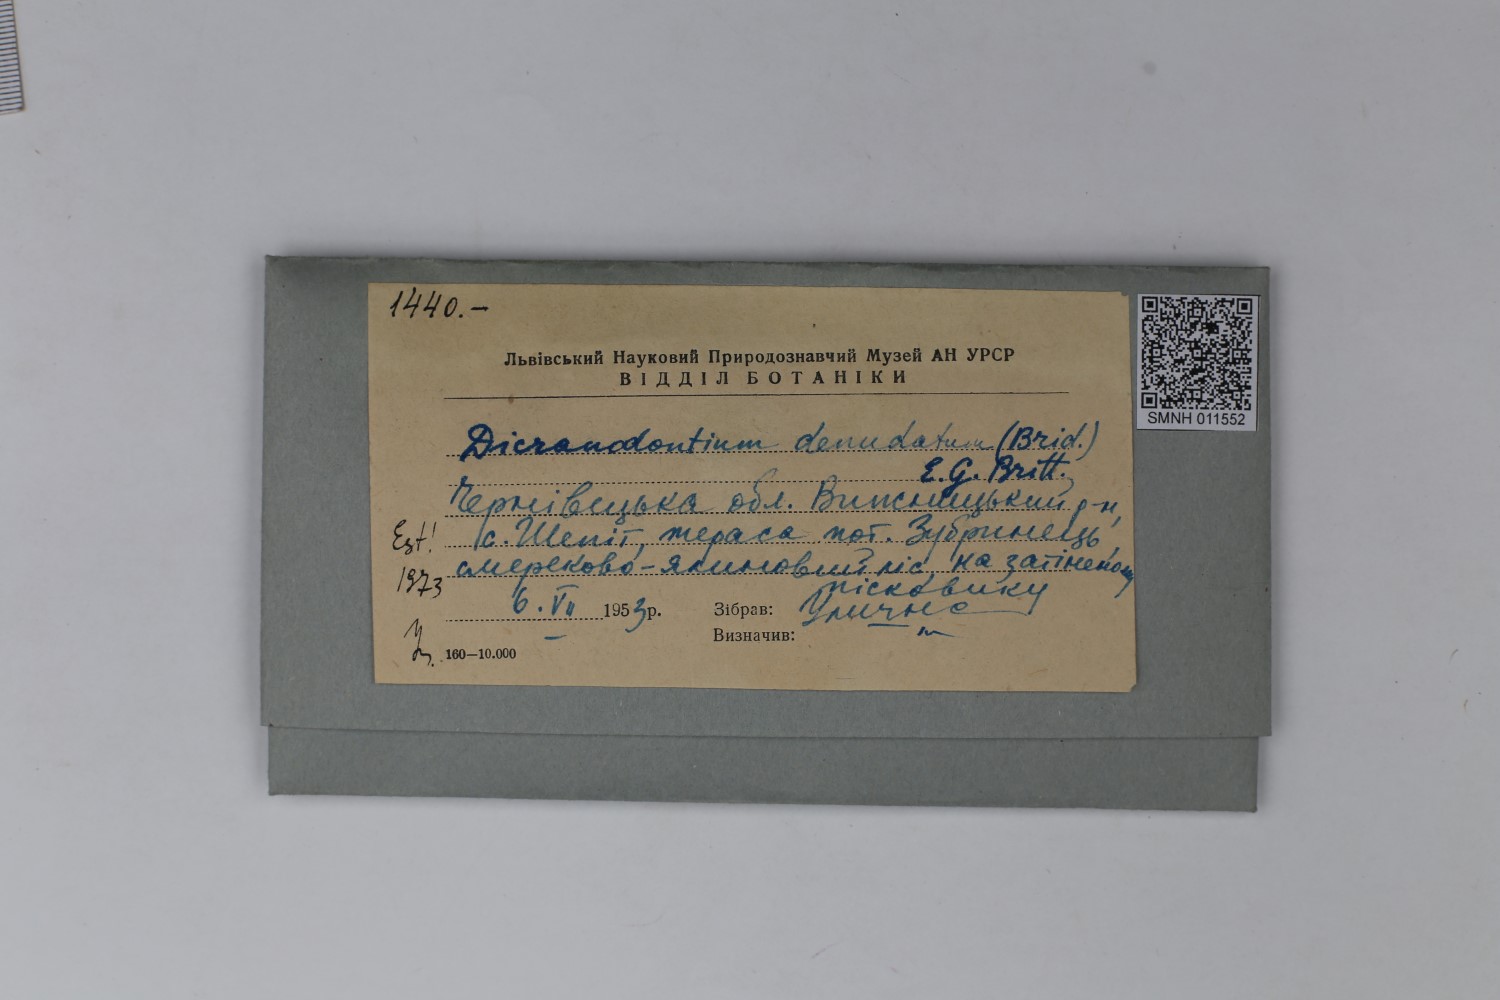 1440.-
Львівський Науковий Природознавчий Музей АН УРСР
ВІДДІЛ БОТАНІКИ
Dicranodontium denudatum (Brid.)
E.G. Britt.
Чернівецька обл. Вижницький р-н,
с. Шепіт, тераса пот. Зубринець
смереково-ялиновий ліс на затіненому
пісковику
Est!
1973
6.VII 1953р.
Зібрав: Улична
Визначив: "
160—10.000
SMNH 011552